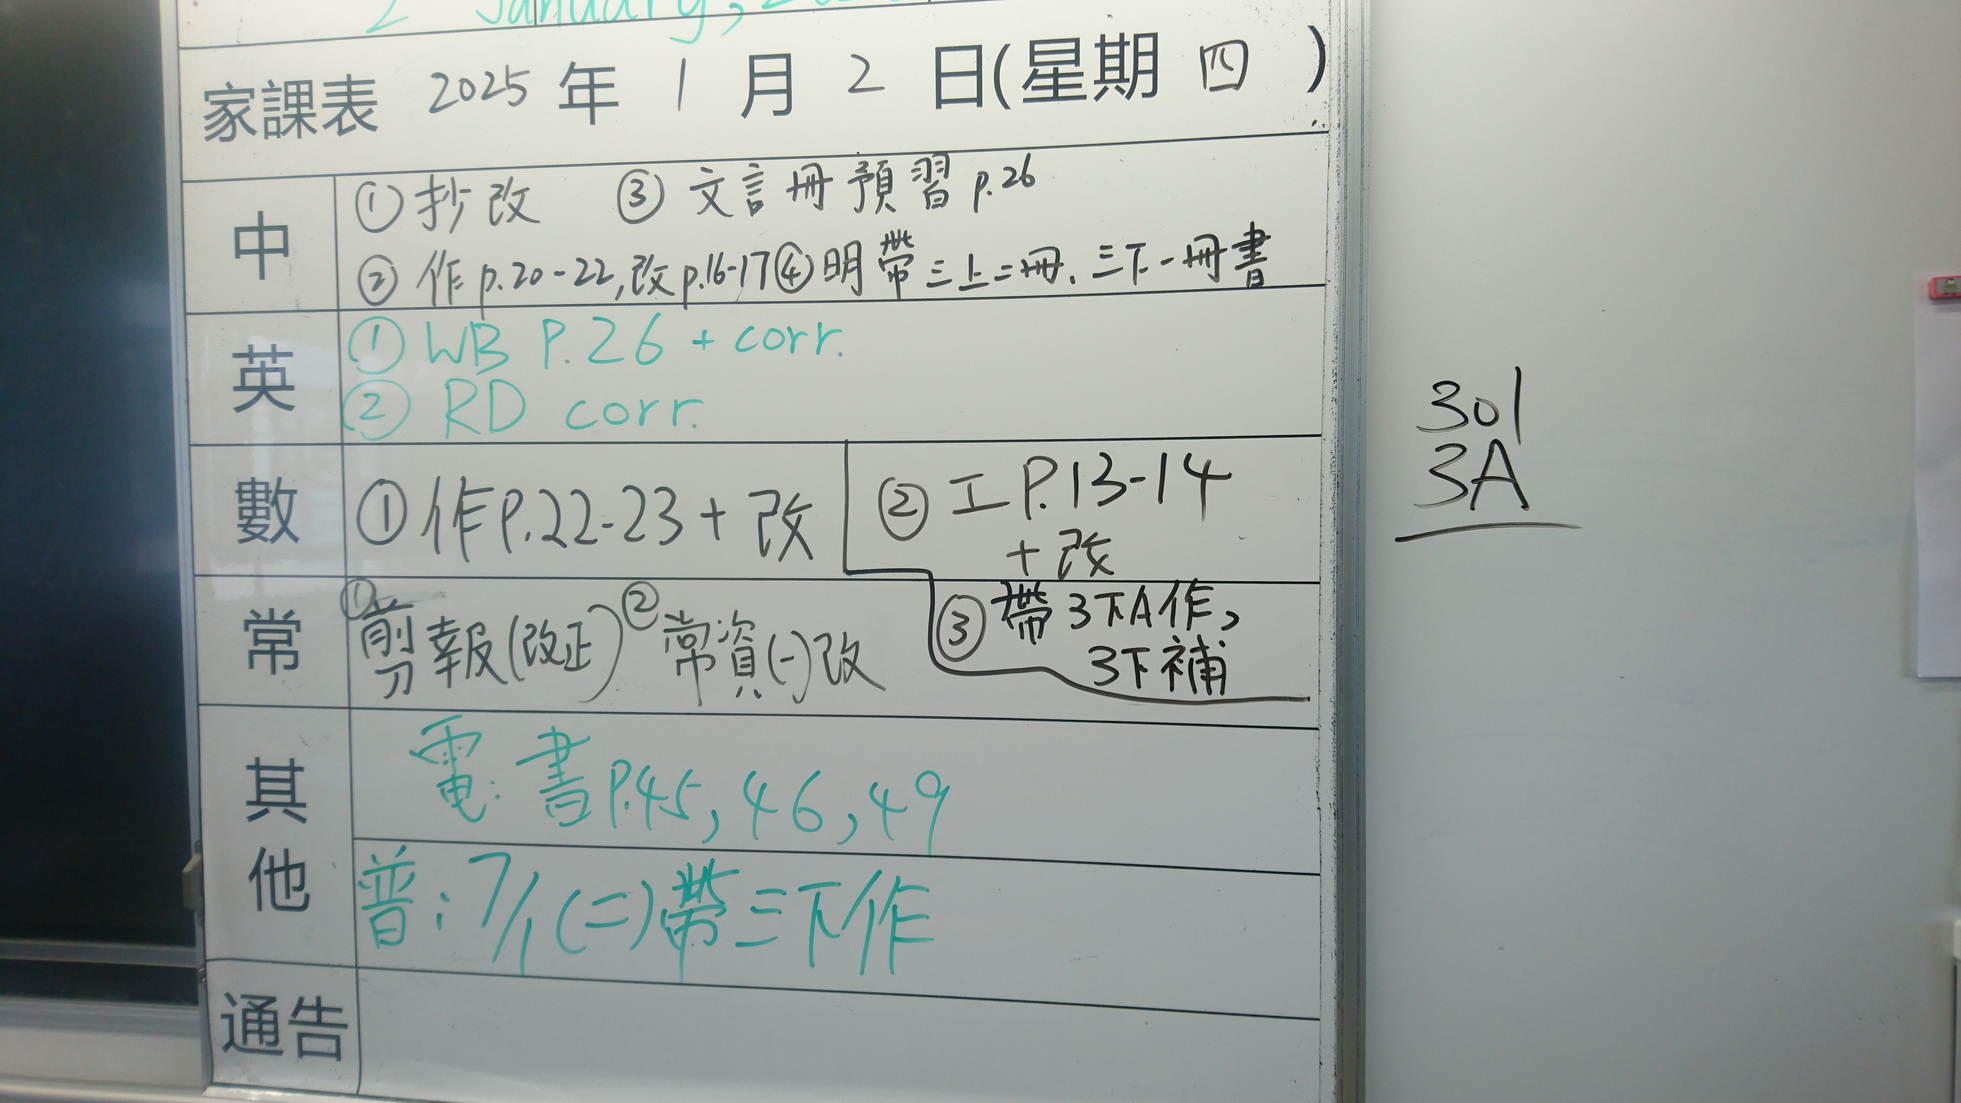 2 January, 2
家課表 2025 年 1 月 2 日(星期 四 )
中
①抄改 ③文言冊預習 p.26
②作p.20-22,改p.16-17④明帶三上二冊、三下一冊書
英
① WB P.26 + corr.
② RD corr.
數
①作P.22-23+改
②工P.13-14
+改
③帶3下A作,
3下補
常
①剪報(改正)②常資(一)改
其他
電:書P.45,46,49
普:7/1(二)帶三下作
通告
301
3A